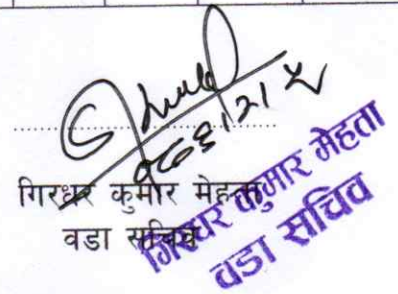 गिरधर कुमार मेहता
वडा सचिव
गिरधर कुमार मेहता
वडा सचिव